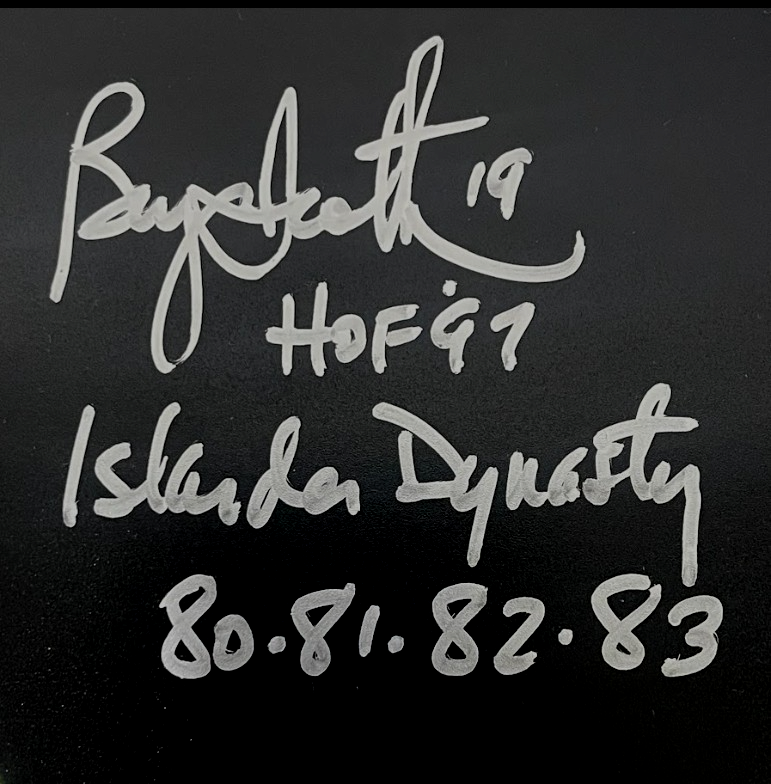 Bryan Trottier 19
HOF '97
Islander Dynasty
80.81.82.83